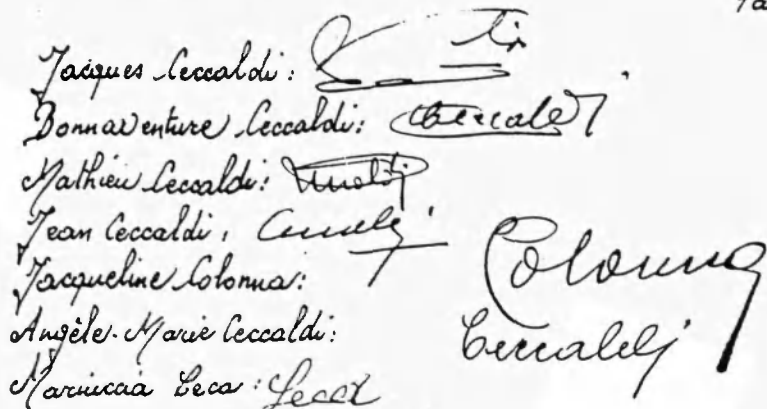 Jacques Ceccaldi:
Bonnaventure Ceccaldi: Ceccaldi
Mathieu Ceccaldi:
Jean Ceccaldi:
Jacqueline Colonna: Colonna
Angèle-Marie Ceccaldi: Ceccaldi
Mariuccia Leca: Leca